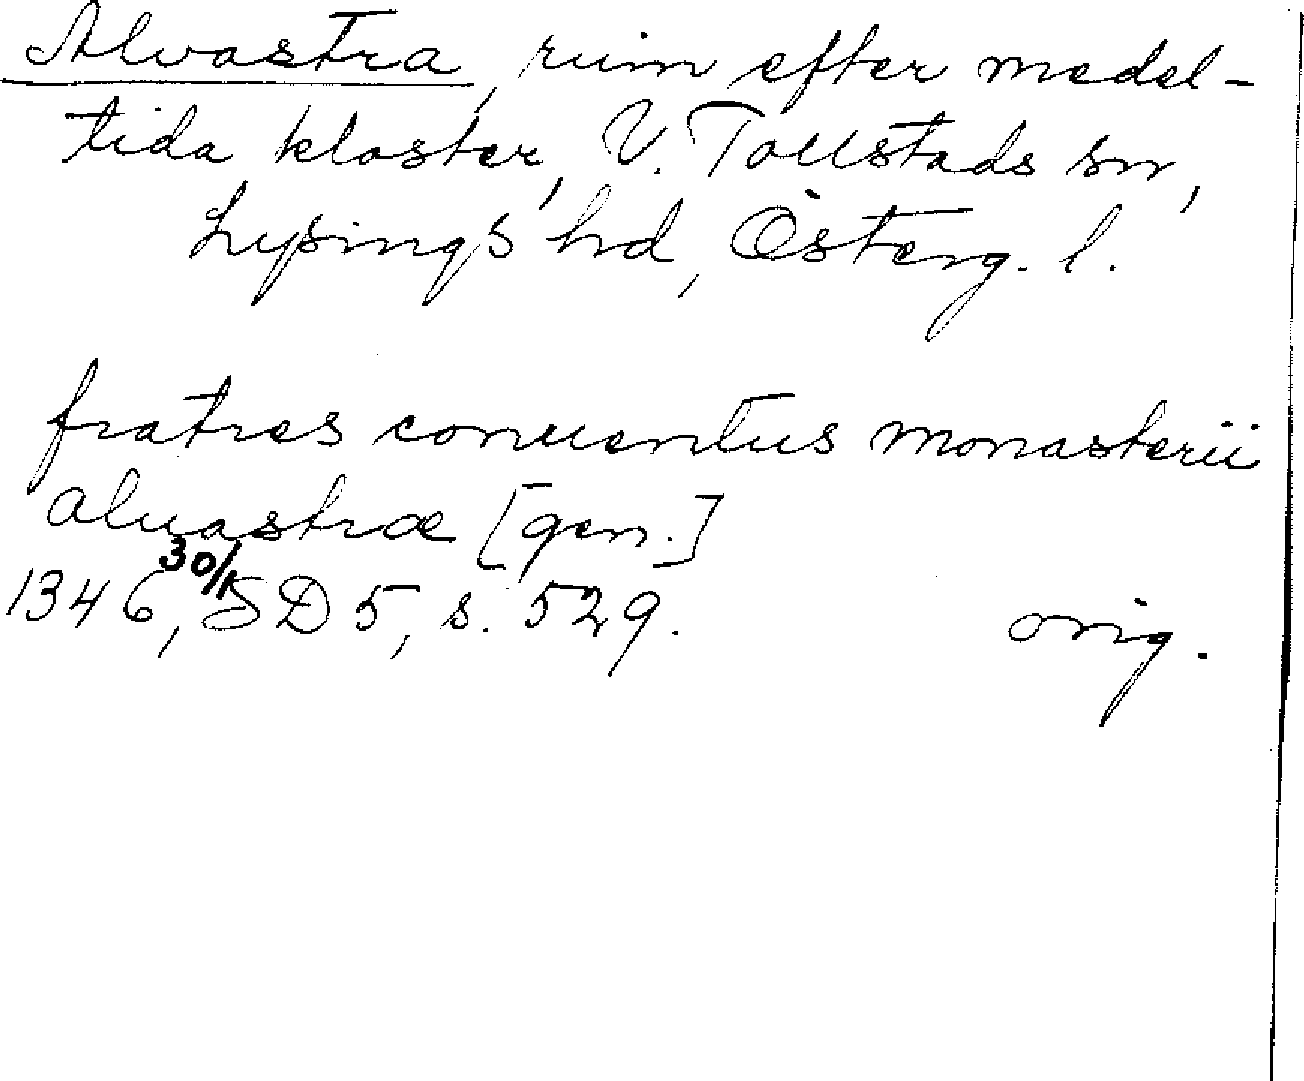 Alvastra, ruin efter medel-
tida kloster, V. Tollstads sn,
Lysings hd, Österg. l.
fratres conuentus monasterii
aluastræ [gen.]
1346, 30/1 SD 5, s. 529. orig.